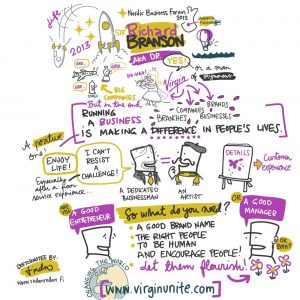 Nordic Business Forum
2012
2013
SIR
Richard
BRANSON
AKA DR.
YES!
or a man
HA-HAA!
Virgin
BIG
COMPANIES
COMPANIES
BRANDS
BROACHES
BUSINESSES
But in the end,
RUNNING
A BUSINESS
IS MAKING A DIFFERENCE IN PEOPLE'S LIVES.
A positive
ENJOY
LIFE!
I CAN'T
RESIST
A
CHALLENGE!
Especially
after a
service experience...
A DEDICATED
BUSINESSMAN
=
AN
ARTIST
DETAILS
Customer
experience
ARE YOU
A GOOD
ENTREPRENEUR
OR
A GOOD
MANAGER
OR
BOTH?
So what do you need?
• A GOOD BRAND NAME
• THE RIGHT PEOPLE
• TO BE HUMAN
AND ENCOURAGE PEOPLE!
let them flourish!
CHANGING THE WORLD
www.virginunite.com